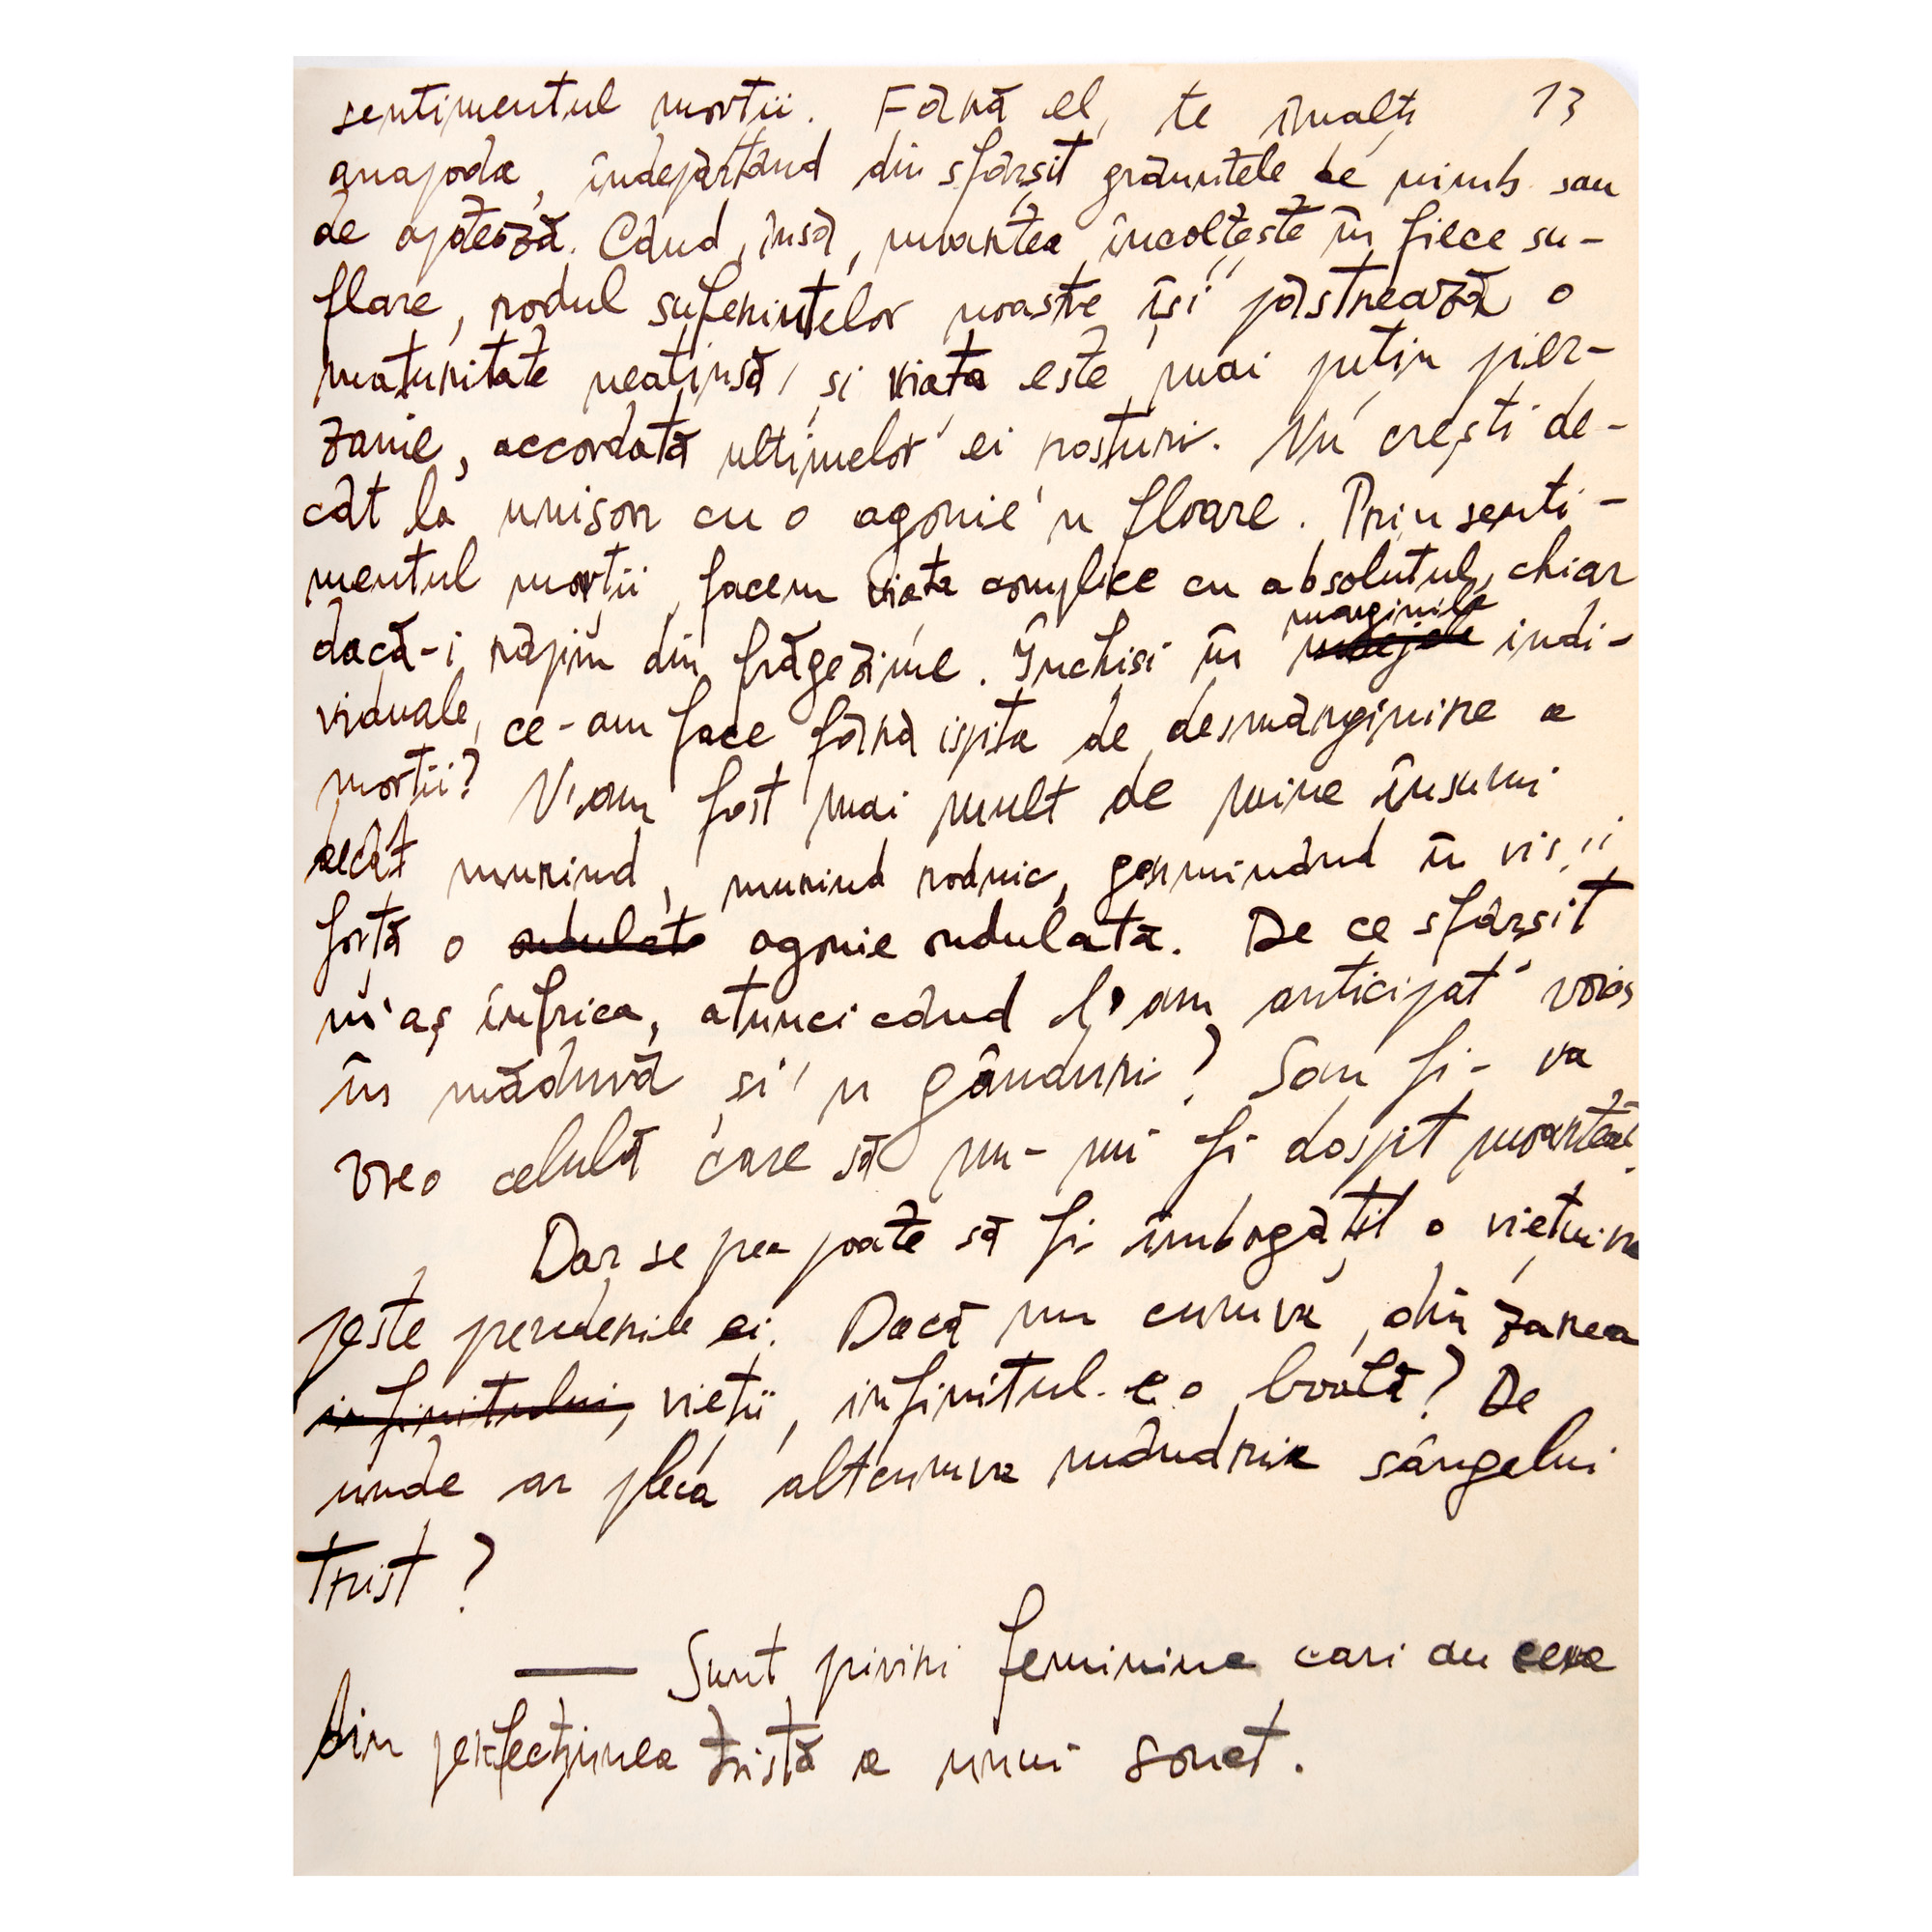 sentimentul morții. Fără el, te înalți 13
anapoda, îndepărtând din sfârșit grăuntele de nimb sau
de apoteoză. Când, însă, moartea încolțește în fiece su-
flare, rodul suferințelor noastre își păstrează o
maturitate neatinsă, și viața este mai puțin pier-
zanie, accordată ultimelor ei rosturi. Nu crești de-
cât la unison cu o agonie'n floare. Prin senti-
mentul morții, facem viața complice cu absolutul, chiar
dacă-i răpim din frăgezime. Închiși în marginile indi-
viduale, ce-am face fără ispita de desmărginire a
morții? N'am fost mai mult de mine însumi
decât murind, murind rodnic, germinând în vis și
forță o ondulate agonie ondulată. De ce sfârșit
m'aș înfrica, atunci când l'am anticipat voios
în măduvă și'n gânduri? Sau fi-va
vreo celulă care să nu-mi fi dospit moartea?
Dar se prea poate să fi îmbogățit o viețuire
peste prevederile ei. Dacă nu cumva, din zarea
infinitului, vieții, infinitul e o boală? De
unde ar pleca altcumva mândria sângelui
trist?
— Sunt priviri feminine cari au ceva
din perfecțiunea tristă a unui sonet.